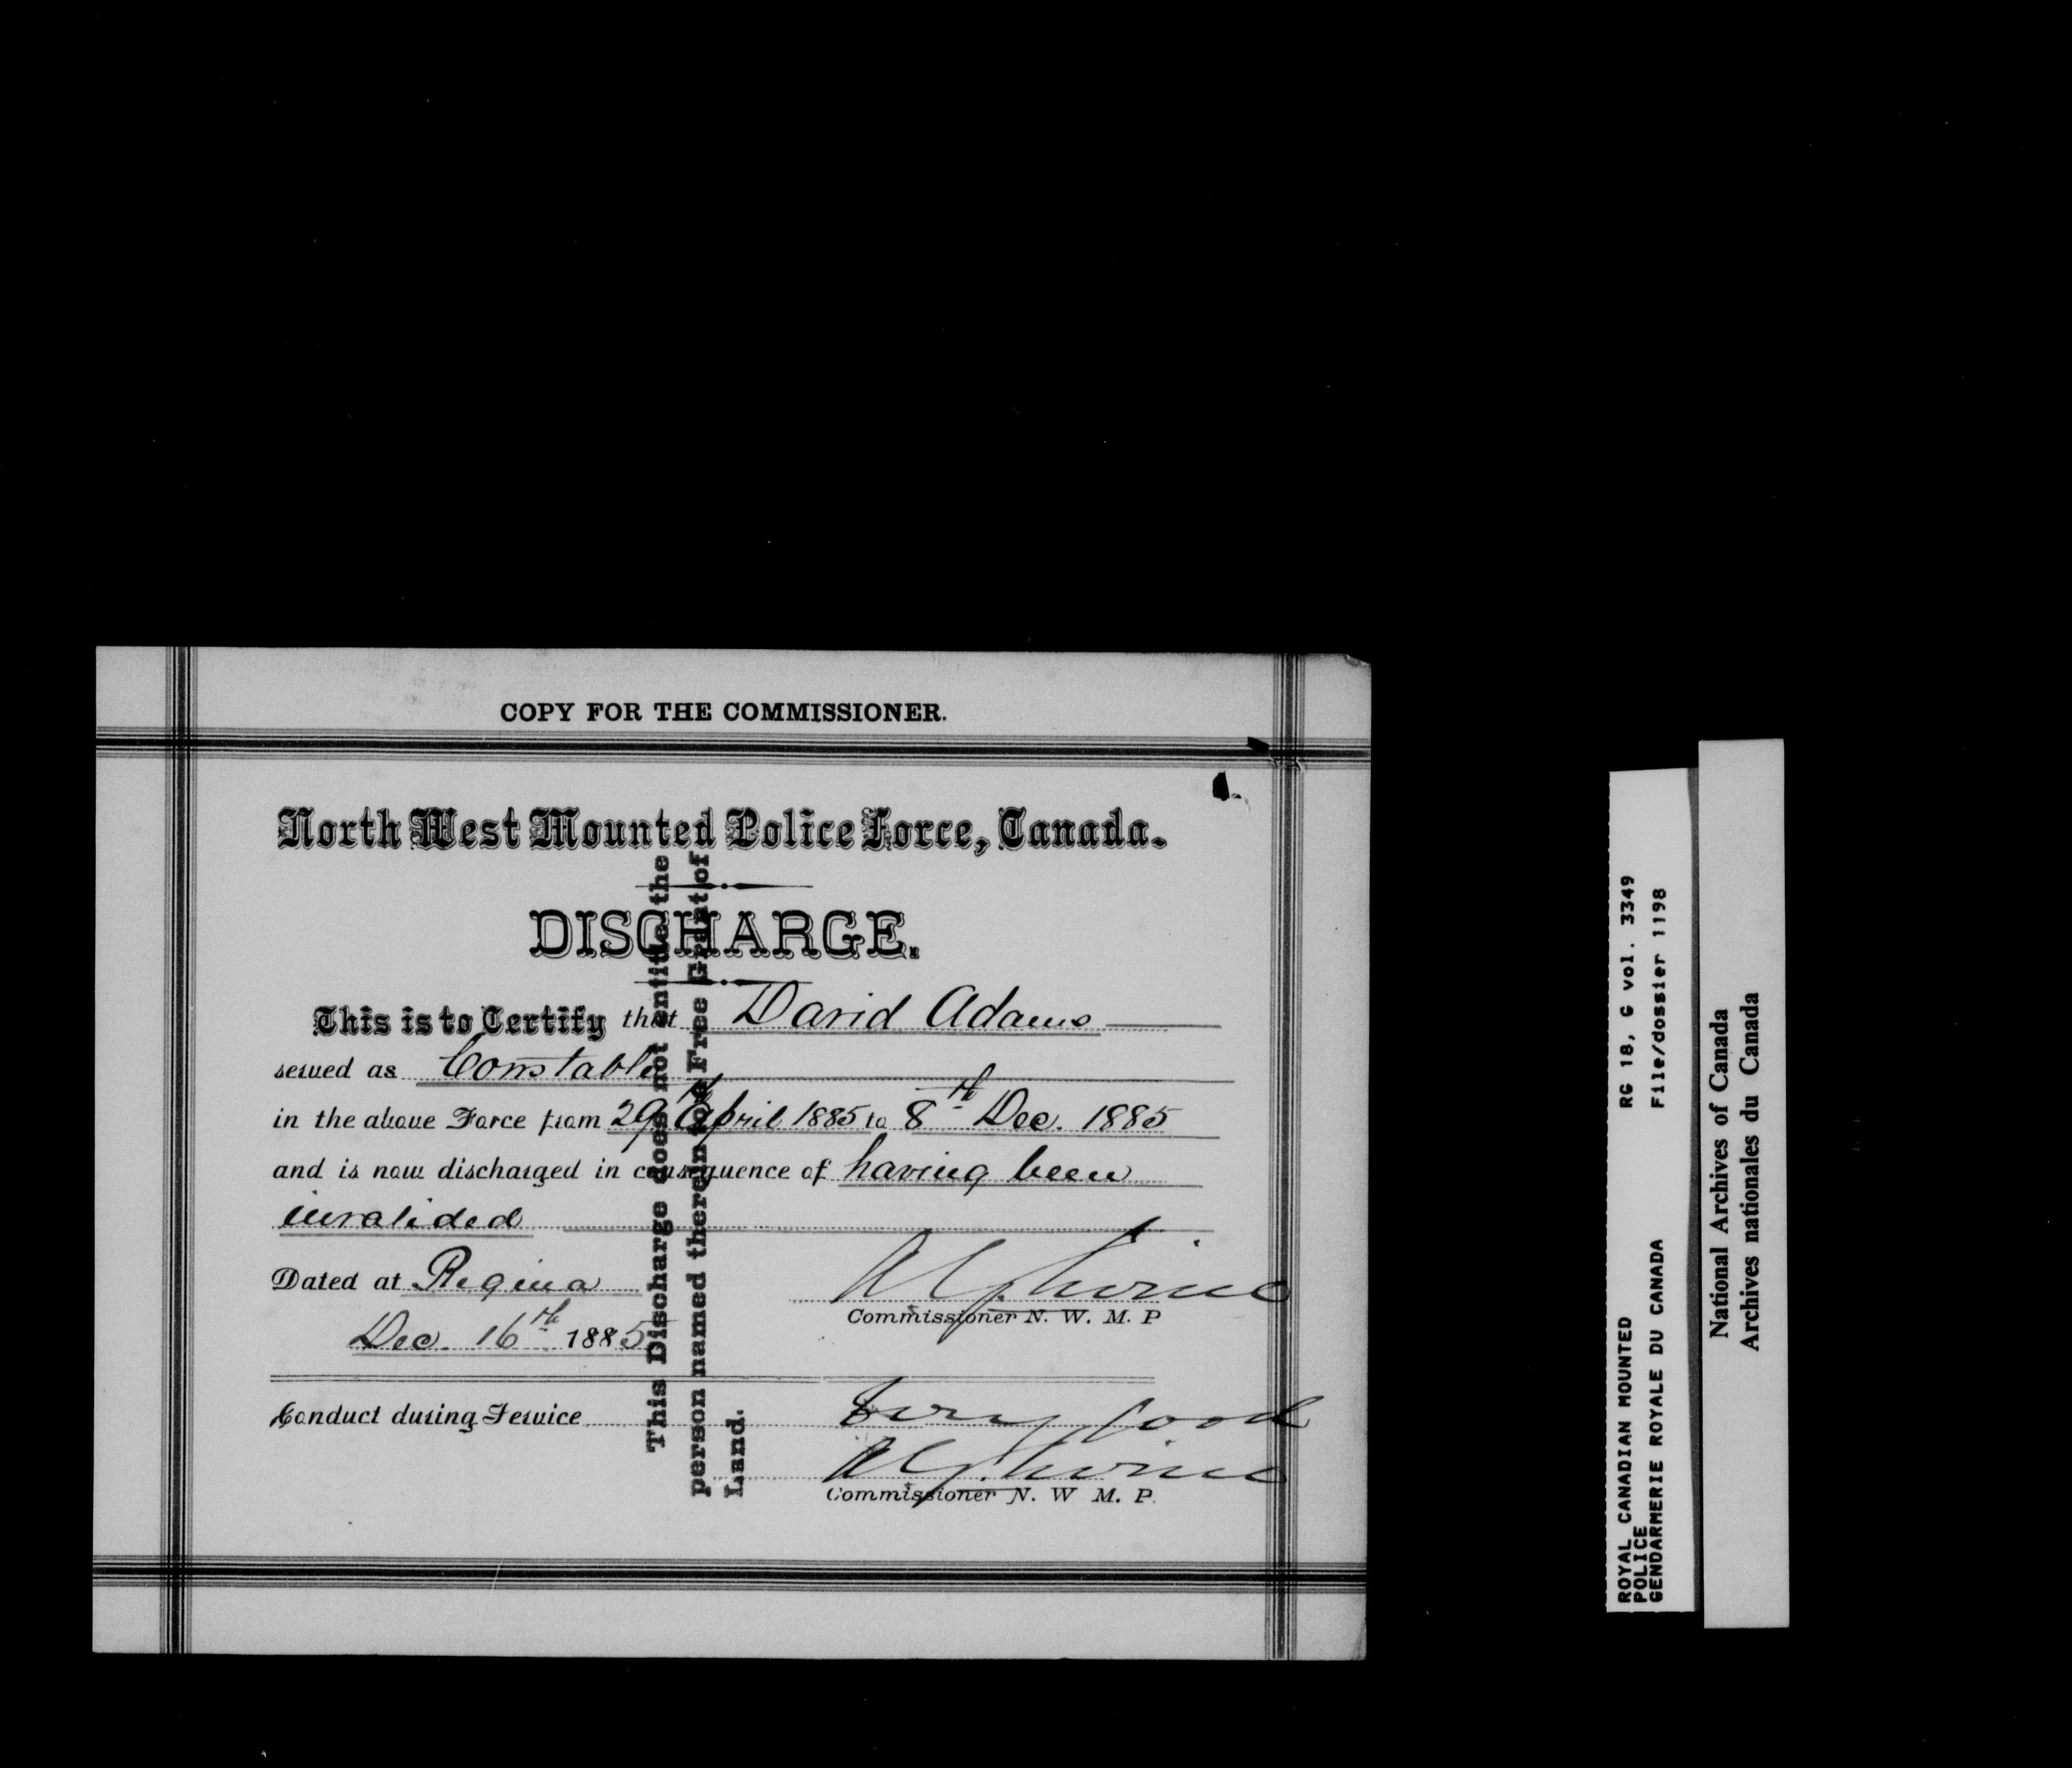 COPY FOR THE COMMISSIONER.
North West Mounted Police Force, Canada.
DISCHARGE.
This is to Certify that David Adams
served as Constable
in the above Force from 29th April 1885 to 8th Dec. 1885
and is now discharged in consequence of having been
invalided
Dated at Regina
Dec. 16th 1885
A G Irvine
Commissioner N. W. M. P
Conduct during Service Very good
A G Irvine
Commissioner N. W M. P.
This Discharge does not entitle the
person named therein to a Free Grant of
Land.
ROYAL CANADIAN MOUNTED
POLICE
GENDARMERIE ROYALE DU CANADA
RG 18, G vol. 3349
File/dossier 1198
National Archives of Canada
Archives nationales du Canada